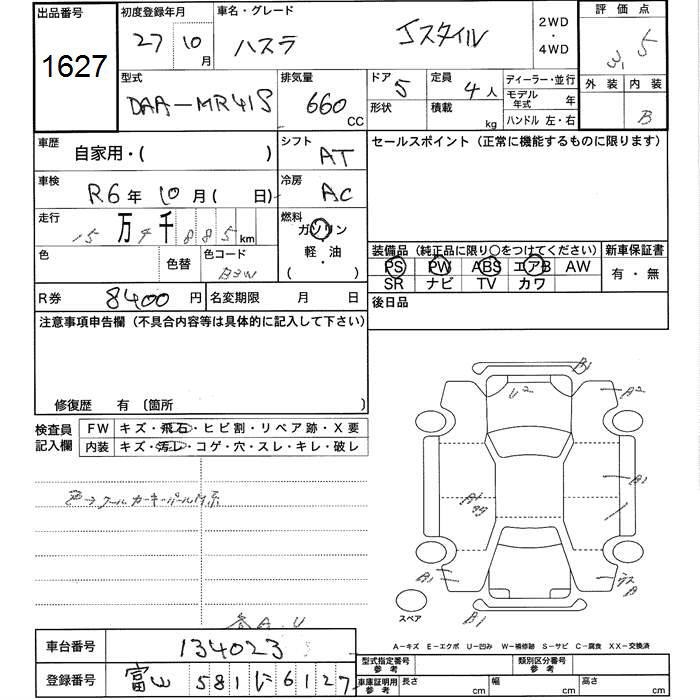 出品番号 初度登録年月 車名・グレード 2WD・4WD 評価点
1627 27 10月 ハスラ Jスタイル 3.5
型式 排気量 ドア 5 定員 4人 ディーラー・並行 外装 内装
DAA-MR41S 660 CC 形状 積載 kg モデル年式 年 B
ハンドル 左・右
車歴 自家用・( ) シフト AT セールスポイント(正常に機能するものに限ります)
車検 R6年 10月( 日) 冷房 AC
走行 15万 4千 885 km 燃料 ガソリン
色 色替 色コード B3W 軽・油 ( )
装備品(純正品に限り〇をつけてください) 新車保証書
PS PW ABS エアB AW 有・無
SR ナビ TV カワ
R券 8400円 名変期限 月 日 後日品
注意事項申告欄(不具合内容等は具体的に記入して下さい)
修復歴 有 〔箇所
検査員記入欄 FW キズ・飛石・ヒビ割・リペア跡・X要
内装 キズ・汚レ・コゲ・穴・スレ・キレ・破レ
B1
U2
A2
B1
B1
B1
スペア
A-キズ E-エクボ U-凹み W-補修跡 S-サビ C-腐食 XX-交換済
車台番号 134023
登録番号 富山 581 に 6127
型式指定番号 参考 類別区分番号 参考
車庫証明用 参考 長さ cm 幅 cm 高さ cm